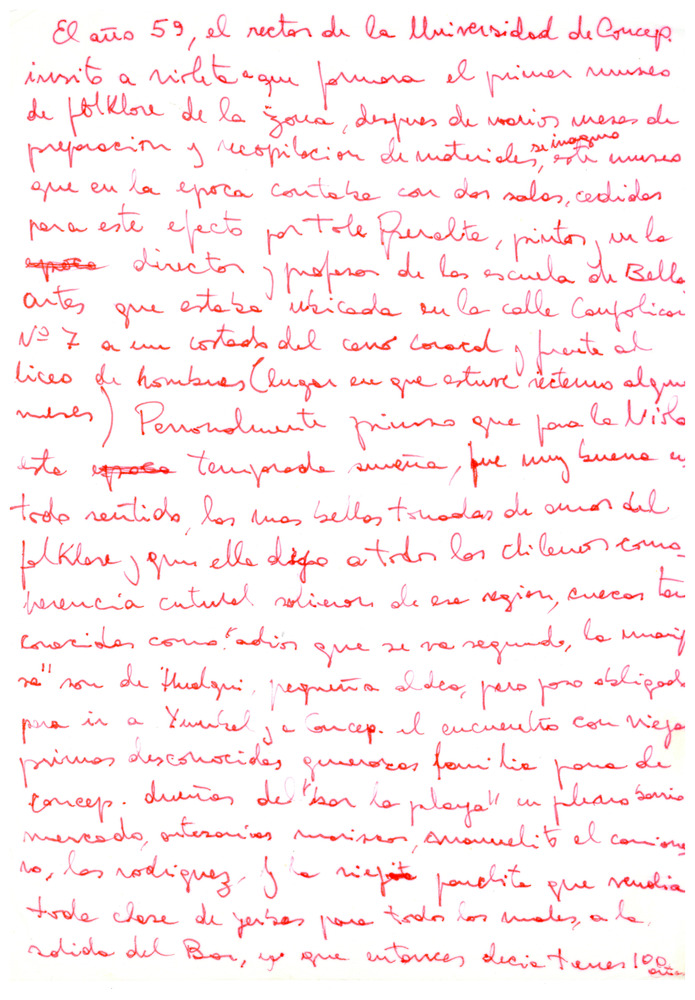 El año 59, el rector de la Universidad de Concep.
invito a violeta a que formara el primer museo
de folKlore de la zona, despues de varios meses de
preparacion y recopilacion de materiales, se inaguro este museo
que en la epoca contaba con dos salas, cedidas
para este efecto por Tole Peralta, pintor, en la
epoca director y profesor de las escuela de Bella
artes que estaba ubicada en la calle Caupolican
Nº 7 a un costado del y frente al
liceo de hombres (lugar en que estuve interno algun
meses) Personalmente pienso que para la Viole
esta epoca temporada sureña, fue muy buena en
todo sentido, las mas bellas tonadas de amor del
folKlore, y que ella dejo a todos los chilenos como
herencia cutural salieron de esa region, cuecas tan
conocidas como "adios que se va segundo, la mari
sa" son de Hualqui, pequeña aldea, pero paso obligado
para ir a Yumbel y a Concep. el encuentro con viejas
primas desconocidas generosas familia para de
concep. dueñas del "bar la playa" en pleno barrio
mercado, artesanias mariscos, manuelito el camione
ro, las rodriguez, y la viejita panchita que vendia
toda clase de yerbas para todos los males, a la
salida del Bar, ya que entonces decia tener 100 años